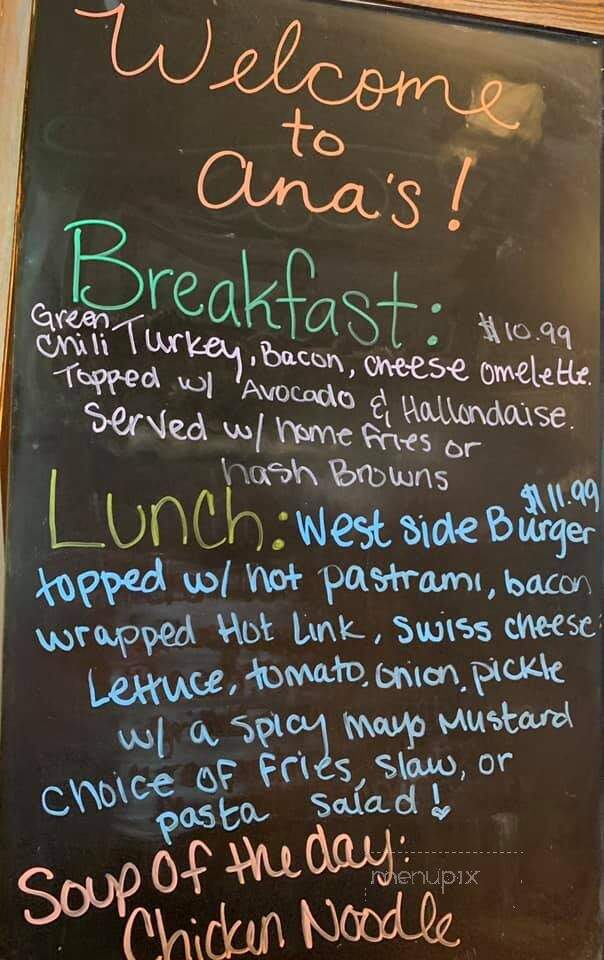 Welcome
to
ana's!
Breakfast: $10.99
Green
Chili Turkey, Bacon, cheese omelette.
Topped w/ Avocado & Hallondaise.
Served w/ home fries or
hash Browns
$11.99
Lunch: West side Burger
topped w/ hot pastrami, bacon
wrapped Hot Link, Swiss cheese
Lettuce, tomato, onion, pickle
w/ a spicy mayo Mustard
choice of fries, slaw, or
pasta salad!
Soup of the day:
menupix
Chicken Noodle